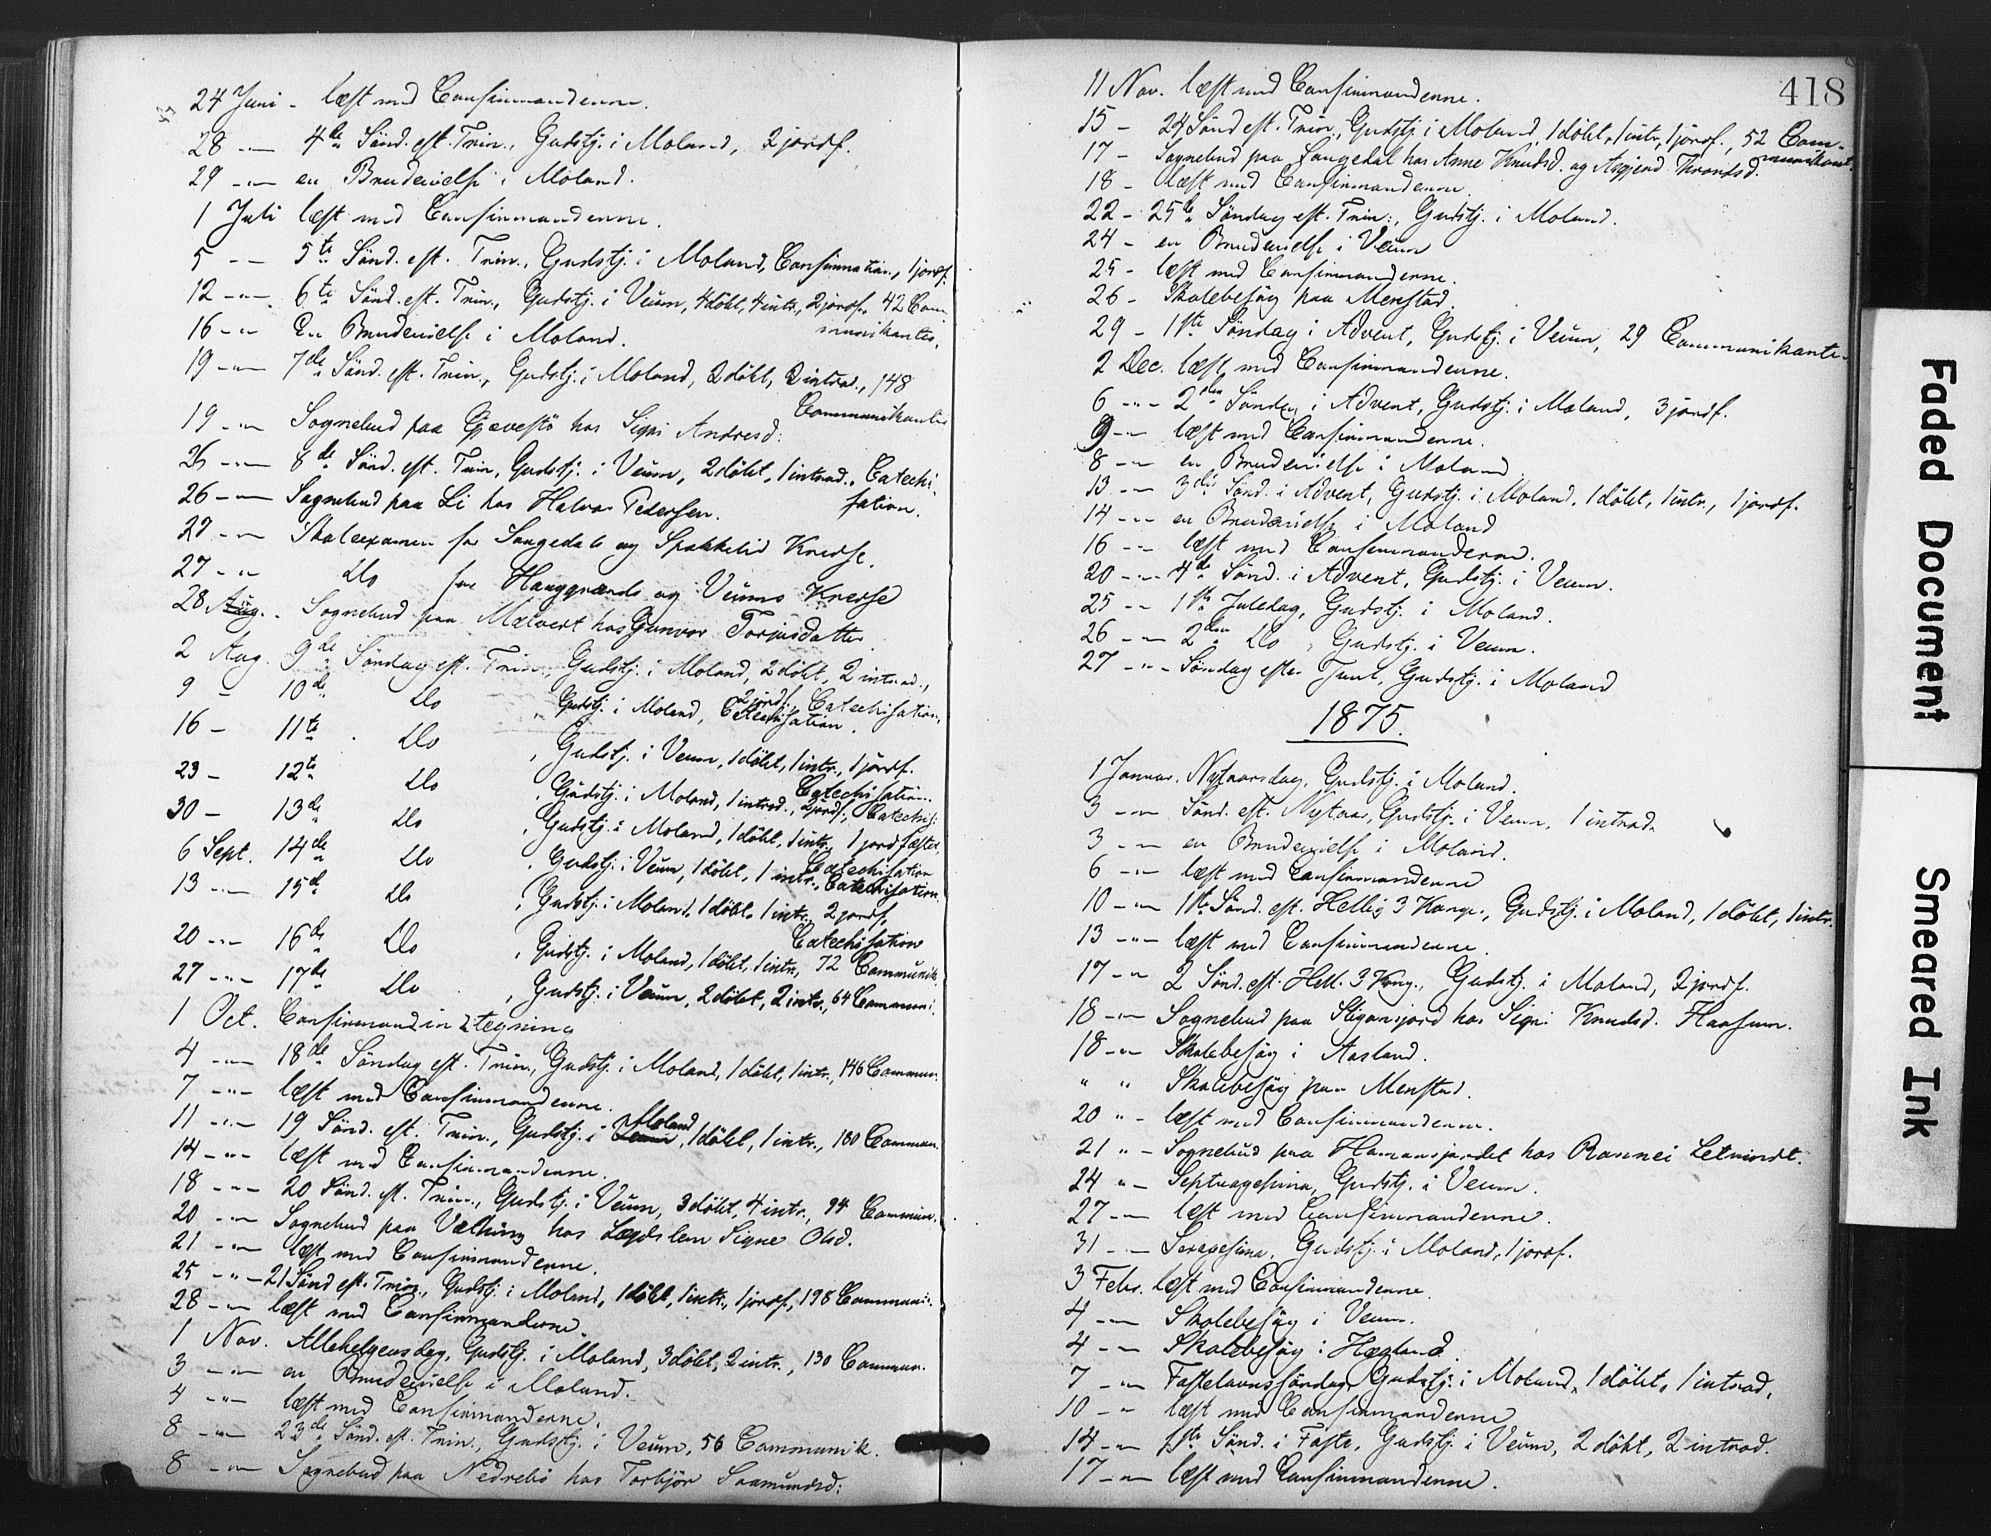 24 Juni - læst med Confirmandenne.
28 -"- 4de Sönd. eft. Trin., Gudstj. i Moland, 2 jordf.
29 -"- en Brudevielse i Moland.
1 Juli læst med Confirmandenne.
5 -"- 5te Sönd. eft. Trin., Gudstj. i Moland, Confirmation, 1 jordf.
12 -"- 6te Sönd. eft. Trin., Gudstj. i Veum, 4 döbt, 4 intr., 2 jordf., 42 Com-
munikanter.
16 -"- En Brudevielse i Moland.
19 -"- 7de Sönd. eft. Trin., Gudstj. i Moland, 2 döbt, 2 introd., 148
Communikanter
19 -"- Sognebud paa Gjevestö hos Signi Andresd.
26 -"- 8de Sönd. eft. Trin, Gudstj. i Veum, 2 döbt, 1 introd., Catechi-
sation.
26 -"- Sognebud paa Li hos Halvor Pedersen.
27 -"- Skoleexamen for Langedals og Spokkelid Kredse.
27 -"- Do for Hauggrends og Veums Kredse
28 Aug. - Sognebud paa hos Gunvor Torjusdatter
2 Aug. 9de Söndag eft. Trin., Gudstj. i Moland, 2 döbt, 2 introd.,
2 jordf., Catechisation,
9 - 10de Do , Gudstj. i Moland, Catechisation.
16 - 11te Do , Gudstj. i Veum, 1 döbt, 1 intr., 1 jordf.
Catechisation.
23 - 12te Do , Gudstj. i Moland, 1 introd., 2 jordf., Catechis:
30 - 13de Do , Gudstj. i Moland, 1 döbt, 1 intr., 1 jordfæstet,
Catechisation
6 Sept. 14de Do , Gudstj. i Veum, 1 döbt, 1 intr., Catechisation
13 -"- 15de Do , Gudstj. i Moland, 1 döbt, 1 intr., 2 jordf,
Catechisation
20 -"- 16de Do , Gudstj. i Moland, 1 döbt, 1 intr, 72 Communik.
27 -"- 17de Do , Gudstj. i Veum, 2 döbt, 2 intr., 64 Commun:
1 Oct. Confirmandindtegning
4 -"- 18de Söndag eft. Trin., Gudstj. i Moland, 1 döbt, 1 intr., 146 Commun.
7 -"- læst med Confirmandenne.
11 -"- 19 Sönd. eft. Trin., Gudstj. i Veum Moland, 1 döbt, 1 intr., 180 Commun.
14 -"- læst med Confirmandenne.
18 -"- 20 Sönd. eft. Trin., Gudstj. i Veum, 3 döbt, 4 intr., 94 Commun.
20 -"- Sognebud paa hos Lægdslem Signe Olsd.
21 -"- læst med Confirmandenne.
25 -"- 21 Sönd eft. Trin., Gudstj. i Moland, 1 döbt, 1 intr., 1 jordf., 198 Communi-
28 -"- læst med Confirmanderne.
1 Nov. Allehelgensdag, Gudstj. i Moland, 3 döbt, 2 intr., 130 Commun.
3 -"- en Brudevielse i Moland.
4 -"- læst med Confirmanderne.
8 -"- 23de Sönd. eft. Trin., Gudstj. i Veum, 56 Communik.
8 -"- Sognebud paa Nedrebö hos Torbjör Saamundsd:
418
11 Nov. læst med Confirmandenne.
15 - 24 Sönd eft. Trin., Gudstj. i Moland, 1 döbt, 1 intr, 1 jordf., 52 Com-
munikant.
17 - Sognebud paa Langedal hos Anne Knudsd. og Asgjerd Throndsd.
18 - læst med Confirmandenne.
22 - 25de Söndag eft. Trin:, Gudstj. i Moland.
24 - en Brudevielse i Veum
25 - læst med Confirmandenne.
26 - Skolebesög paa Menstad.
29 - 1ste Söndag i Advent, Gudstj. i Veum, 29 Communikante.
2 Dec. læst med Confirmandenne.
6 -"- 2den Söndag i Advent, Gudstj. i Moland, 3 jordf.
9 -"- læst med Confirmandenne.
8 -"- en Brudevielse i Moland
13 -"- 3die Sönd. i Advent, Gudstj. i Moland, 1 döbt, 1 intr., 1 jordf.
14 -"- en Brudevielse i Moland
16 -"- læst med Confirmanderne.
20 -"- 4de Sönd. i Advent, Gudstj. i Veum.
25 -"- 1ste Juledag, Gudstj. i Moland.
26 -"- 2den Do , Gudstj. i Veum.
27 -"- Söndag efter Juul, Gudstj. i Moland
1875.
1 Januar. Nytaarsdag, Gudstj. i Moland.
3 -"- Sönd. eft. Nytaar, Gudstj. i Veum, 1 introd.
3 -"- en Brudevielse i Moland.
6 -"- læst med Confirmandenne
10 -"- 1ste Sönd. eft. Hellig 3 Konge., Gudstj. i Moland, 1 döbt, 1 intr.
13 -"- læst med Confirmandenne
17 -"- 2 Sönd. eft. Hell. 3 Kong., Gudstj. i Moland, 2 jordf.
18 -"- Sognebud paa hos Signi Knudsd. Haasum.
18 -"- Skolebesög i Aasland.
" " Skolebesög paa Menstad.
20 "- læst med Confirmandenne.
21 "- Sognebud paa hos Rannei
24 "- Septuagesima, Gudstj. i Veum.
27 -"- læst med Confirmandenne.
31 -"- Sexagesima, Gudstj. i Moland, 1 jordf.
3 Febr. læst med Confirmandenne.
4 -"- Skolebesög i Veum.
4 -"- Skolebesög i Hægland.
7 -"- Fastelavnssöndag, Gudstj. i Moland, 1 döbt, 1 introd,
10 -"- læst med Confirmandenne
14 -"- 1ste Sönd. i Faste, Gudstj. i Veum, 2 döbt, 2 introd.
17 -"- læst med Confirmandenne.
Faded Document
Smeared Ink